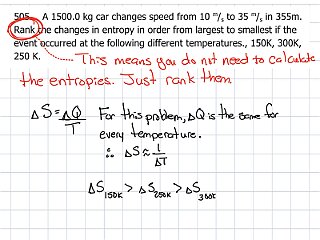 505. A 1500.0 kg car changes speed from 10 m/s to 35 m/s in 355m.
Rank the changes in entropy in order from largest to smallest if the
event occurred at the following different temperatures., 150K, 300K,
250 K.
This means you do not need to calculate
the entropies. Just rank them
ΔS = ΔQ/T For this problem, ΔQ is the same for
every temperature.
∴ ΔS ≈ 1/ΔT
ΔS150K > ΔS250K > ΔS300K